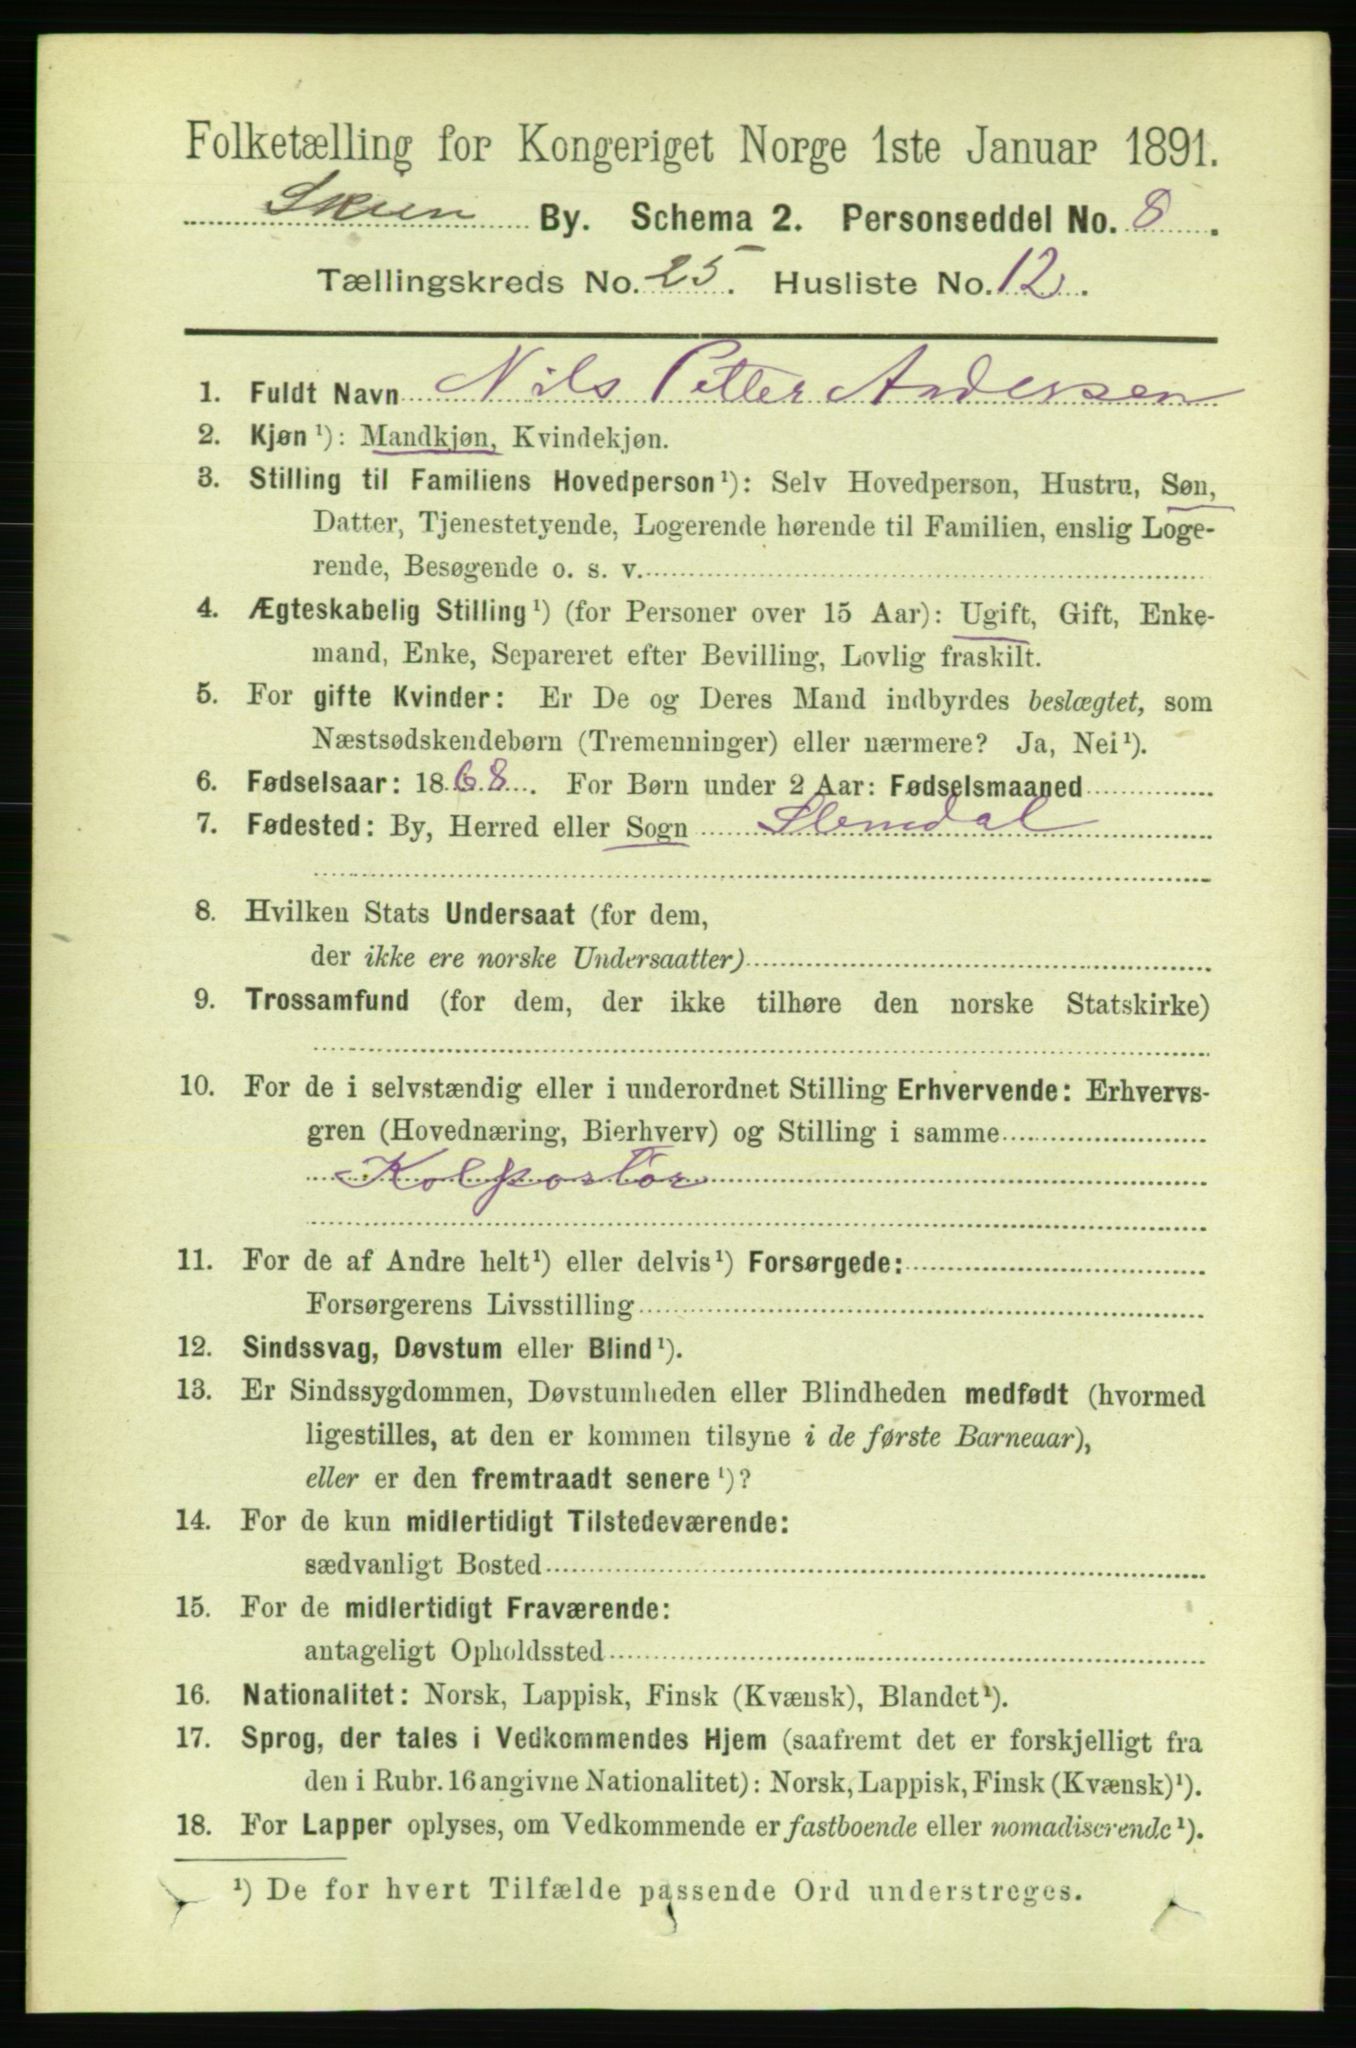 Folketælling for Kongeriget Norge 1ste Januar 1891.
Skien By. Schema 2. Personseddel No. 8.
Tællingskreds No. 25. Husliste No. 12.
1. Fuldt Navn Nils Petter Andersen
2. Kjøn¹): Mandkjøn, Kvindekjøn.
3. Stilling til Familiens Hovedperson¹): Selv Hovedperson, Hustru, Søn,
Datter, Tjenestetyende, Logerende hørende til Familien, enslig Loge-
rende, Besøgende o. s. v.
4. Ægteskabelig Stilling¹) (for Personer over 15 Aar): Ugift, Gift, Enke-
mand, Enke, Separeret efter Bevilling, Lovlig fraskilt.
5. For gifte Kvinder: Er De og Deres Mand indbyrdes beslægtet, som
Næstsødskendebørn (Tremenninger) eller nærmere? Ja, Nei¹).
6. Fødselsaar: 1868. For Børn under 2 Aar: Fødselsmaaned
7. Fødested: By, Herred eller Sogn Slemdal
8. Hvilken Stats Undersaat (for dem,
der ikke ere norske Undersaatter)
9. Trossamfund (for dem, der ikke tilhøre den norske Statskirke)
10. For de i selvstændig eller i underordnet Stilling Erhvervende: Erhvervs-
gren (Hovednæring, Bierhverv) og Stilling i samme
Kolportør
11. For de af Andre helt¹) eller delvis¹) Forsørgede:
Forsørgerens Livsstilling
12. Sindssvag, Døvstum eller Blind¹).
13. Er Sindssygdommen, Døvstumheden eller Blindheden medfødt (hvormed
ligestilles, at den er kommen tilsyne i de første Barneaar),
eller er den fremtraadt senere¹)?
14. For de kun midlertidigt Tilstedeværende:
sædvanligt Bosted
15. For de midlertidigt Fraværende:
antageligt Opholdssted
16. Nationalitet: Norsk, Lappisk, Finsk (Kvænsk), Blandet¹).
17. Sprog, der tales i Vedkommendes Hjem (saafremt det er forskjelligt fra
den i Rubr. 16 angivne Nationalitet): Norsk, Lappisk, Finsk (Kvænsk)¹).
18. For Lapper oplyses, om Vedkommende er fastboende eller nomadiserende¹).
¹) De for hvert Tilfælde passende Ord understreges.